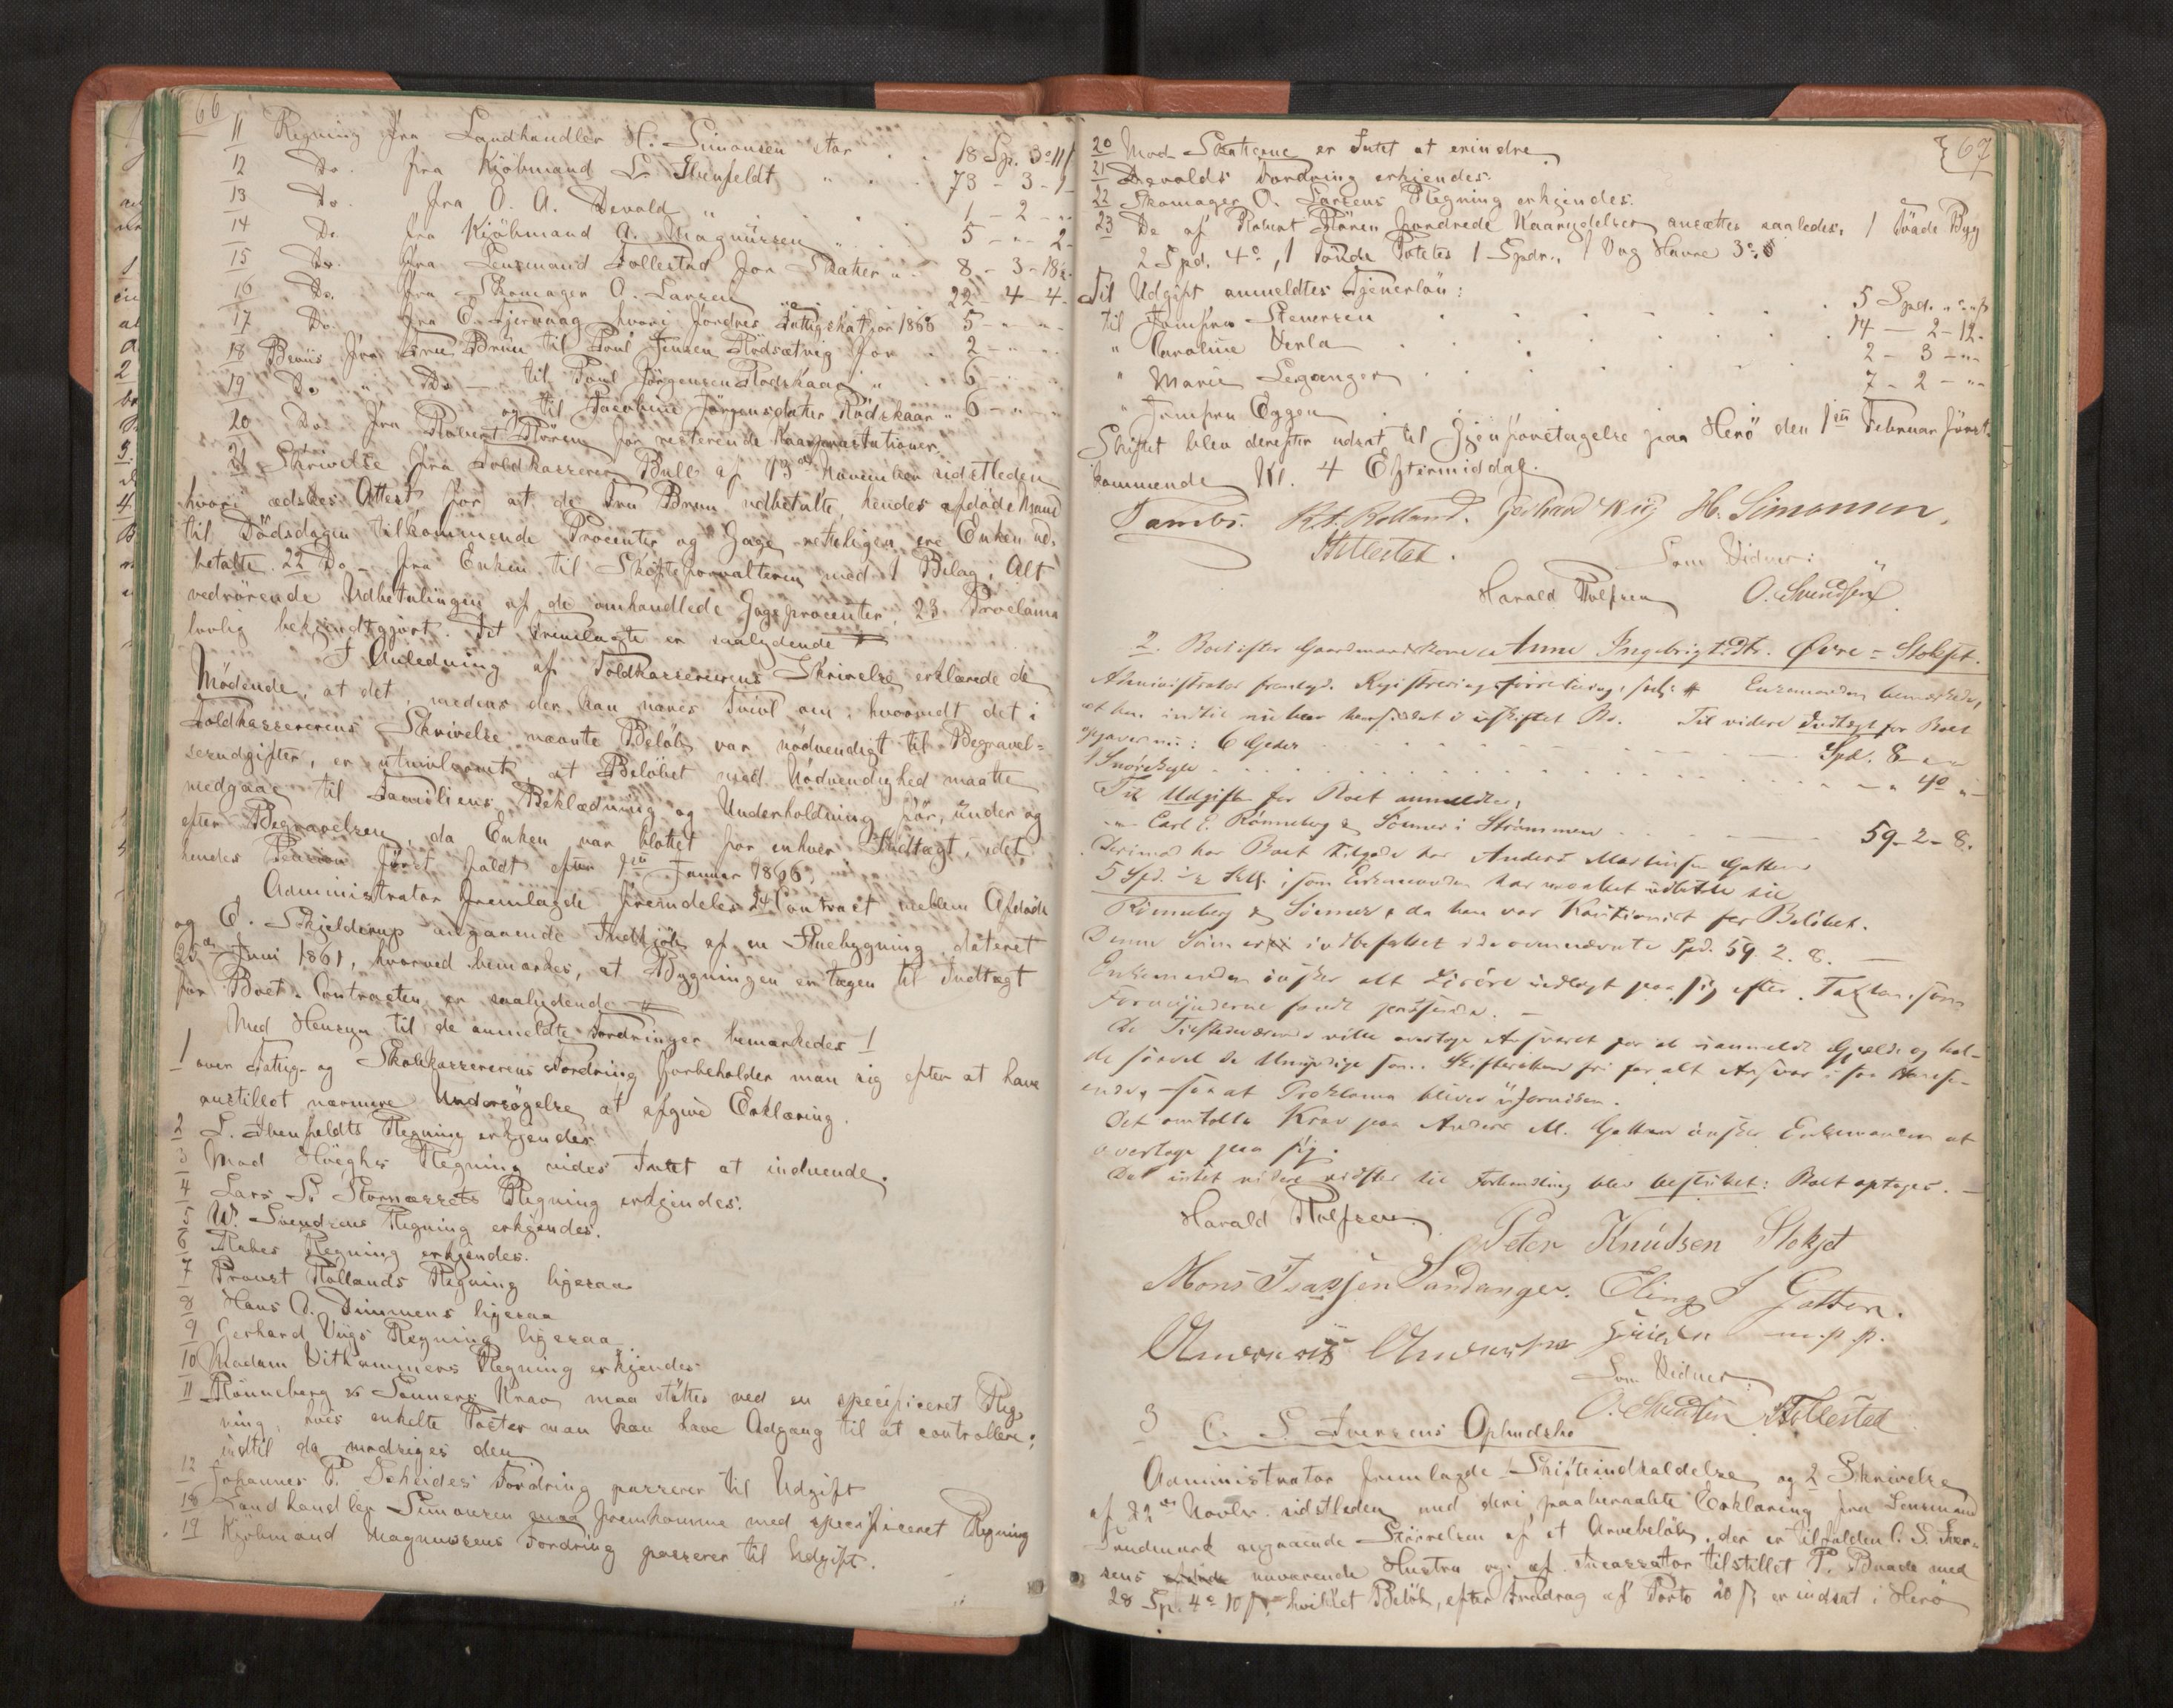 66
11 Regning fra Landhandler H. Simonsen stor . . 18 Sp. 3 11
12 Do. fra Kjöbmand L. Ibenfeldt " . . 73 - 3 - 1
13 Do. fra O. A. Devold " . . 1 - 2 - "
14 Do. fra Kjöbmand A. Magnussen " . . 5 - " 2
15 Do. fra Lensmand Follestad for Skatter " . 8 - 3 - 18
16 Do. fra Skomager O. Larsen 22 - 4 - 4
17 Do. fra E. hvori fordres Fattigskat for 1865 5 - " "
18 Beviis fra Fru Brun til Poul Jensen for . 2 - " "
19 Do " Do - til Poul Jörgensen Rödskaar " . 6 - " "
og til Jacobine Jörgensdatter Rödskaar " 6 - " "
20 Do. fra Robert for resterende
21 Skrivelse fra Toldkasserer Bull af 13de November sidstleden
hvori ædskes Attest for at de Fru Brun udbetalte, hendes afdöde Mand
til Dödsdagen tilkommende Procenter og Gage retteligen ere Enken ud-
betalte. 22 Do - fra Enken til Skifteforvalteren med 1 Bilag, Alt
vedrörende Udbetalingen af de omhandlede Gageprocenter, 23. Proclama
lovlig bekjendtgjort. Det Fremlagte er saalydende #
I Anledning af Toldkassererens Skrivelse erklærede de
Mödende, at det, medens der kan næres Tvivl om, hvorvidt det i
Toldkassererens Skrivelse nævnte Belöb var nödvendigt til Begravel-
sesudgifter, er utvivlsomt, at Belöbet med Nödvendighed maatte
medgaae til Familiens Beklædning og Underholdning för, under og
efter Begravelsen, da Enken var blottet for enhver Indtægt, idet
hendes Pension först faldt efter 1ste Januar 1866.
Administrator fremlagde fremdeles 24 Contract mellem Afdöde
og E. Schjelderup angaaende Indkjöb af en Stuebygning, dateret
25de Juni 1861, hvorved bemærkes, at Bygningen er tagen til Indtægt
for Boet. Contracten er saalydende #
Med Hensyn til de anmeldte Fordringer bemærkedes 1
1 over Fattig- og Skolekassererens Fordring forbeholder man sig efter at have
anstillet nærmere Undersögelse at afgive Erklæring.
2 L. Ibenfeldts Regning erkjendes.
3 Mod Höeghs Regning vides Intet at indvende.
4 Lars P. Regning erkjendes.
5 W. Svendsens Regning erkjendes.
6 Regning erkjendes.
7 Provst Rollands Regning ligesaa
8 Hans O. ligesaa
9 Gerhard Viigs Regning ligesaa
10 Madam Vithammers Regning erkjendes
11 Rönneberg & Sönners Krav maa stöttes ved en specificeret Reg-
ning, hvis enkelte Poster man kan have Adgang til at controllere;
indtil da modsiges den
12 Johannes P. Fordring passerer til Udgift
18 Landhandler Simonsen maa fremkomme med specificeret Regning
19 Kjöbmand Magnussens Fordring passerer til Udgift.
67
20 Mod Skatterne er Intet at erindre.
21 Devolds Fordring erkjendes.
22 Skomager O. Larsens Regning erkjendes.
23 De af Robert fordrede ansættes saaledes: 1 Tönde Byg
2 Spd. 4, 1 Tönde Potetes 1 Spd., 1 Vog Havre 3
Til Udgift anmeldtes Tjenerlön:
Til Jomfru Stenersen . . . 5 Spd. " "
" Caroline Verla . . . 14 - 2 - 12
" Marie Leganger . . . 2 - 3 - "
" Jomfru Eggen . . . 7 - 2 - "
Skiftet blev derefter udsat til Gjenforetagelse paa Herö den 1ste Februar först-
kommende Kl. 4 Eftermiddag.
Tambs. Rolland. Gerhard Viig H. Simonsen.
Follestad. Som Vidner:
Harald Rolfsen O. Svendsen
2. Boet efter Gaardmandskone Anne Ingebrigtsdtr. Övre-Stokset.
Administrator fremlagde Registreringsforretning # Enkemanden bemærkede,
at han indtil nu har hensiddet i uskiftet Bo. Til videre Indtægt for Boet
opgaves nu: 6 Geder . . . Spd. 8 " "
1 . . . " 40 "
Til Udgift for Boet anmeldtes,
Carl E. Rönneberg & Sönner i Strömmen . . . 59 - 2 - 8.
Derimod har Boet tilgode hos Anders Martinsen Gotten
5 Spd. som Enkemanden har maattet udbetale til
Rönneberg & Sönner, da han var Kautionist for Belöbet.
Denne Sum er indbefattet i de ovennævnte Spd. 59. 2. 8. —
Enkemanden önsker alt Lösöre udlagt paa sig efter Taxten, som
Formynderne fandt passende. —
De Tilstedeværende ville overtage Ansvaret for al uanmeldt Gjæld og hol-
de saavel de Umyndige som Skifteretten fri for alt Ansvar i saa Hense-
ende, saa at Proklama bliver ufornöden.
Det omtalte Krav paa Anders M. Gotten önsker Enkemanden at
overtage paa sig.
Da intet videre vidstes til Forhandling blev besluttet: Boet optages. —
Harald Rolfsen Peter Knudsen Stokset
Mons Isaksen Sandanger. Eling S Gotten.
m.p.p.
Som Vidner:
O. Svendsen Follestad
3 C. S. Iversens Opbudsbo
Administrator fremlagde 1 Skifteindkaldelse og 2 Skrivelse
af 22de Novbr. sidstleden med deri paaberaabte Erklæring fra Lensmand
angaaende Störrelsen af et Arvebelöb, der er tilfalden C. S. Iver-
sens nuværende Hustru og af Incassator tilstillet P. Buade med
28 Sp. 4 10 ß. hvilket Belöb, efter Fradrag af Porto 20 ß er indsat i Herö